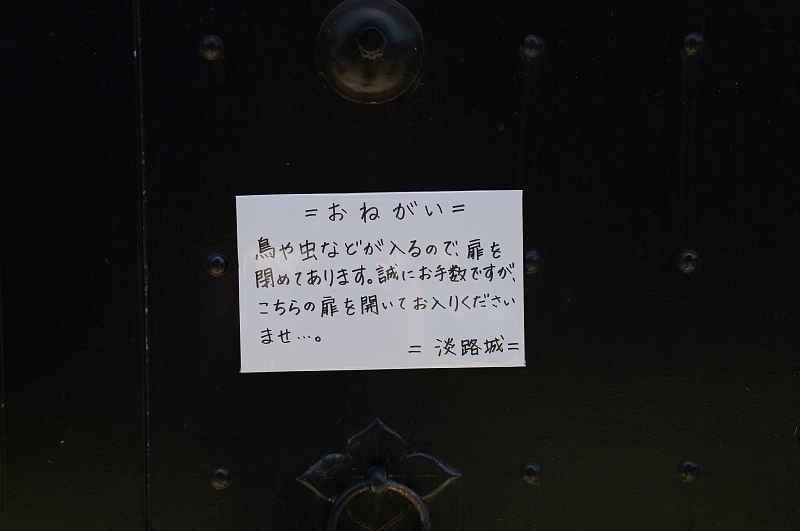 =おねがい=
鳥や虫などが入るので、扉を
閉めてあります。誠にお手数ですが、
こちらの扉を開いてお入りください
ませ…。
=淡路城=